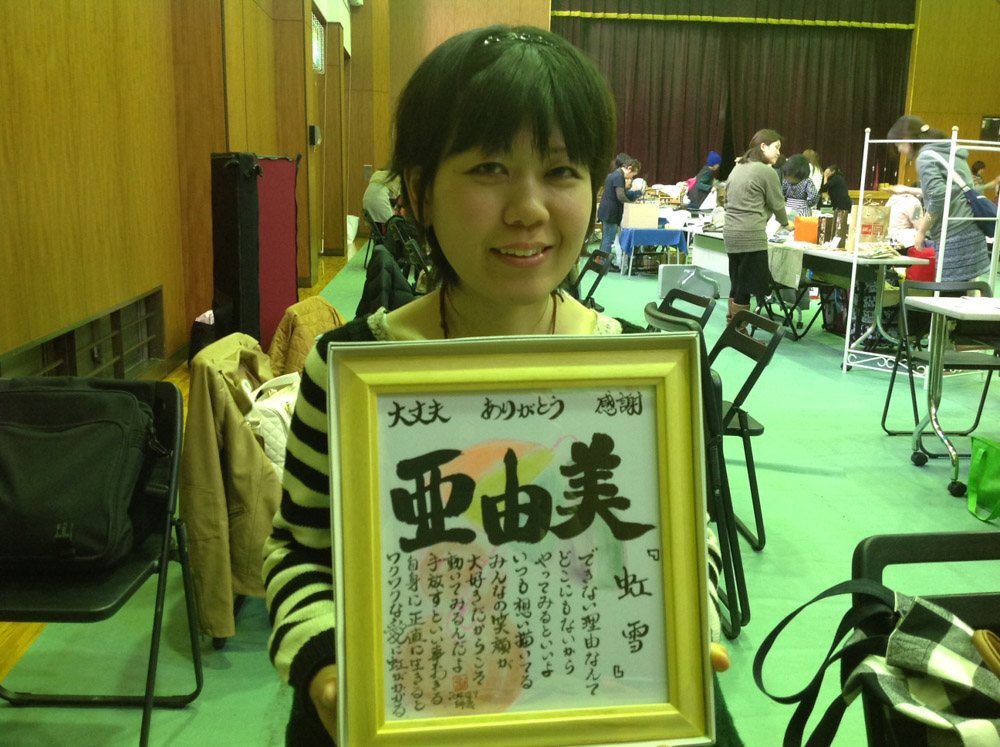 大丈夫 ありがとう 感謝
亜由美
『虹雪』
できない理由なんて
どこにもないから
やってみるといいよ
いつも想い描いてる
みんなの笑顔が
大好きだからこそ
動いてみるんだよ
手放すといい事おきる
自身に正直に生きると
ワクワクな愛に虹がかかる